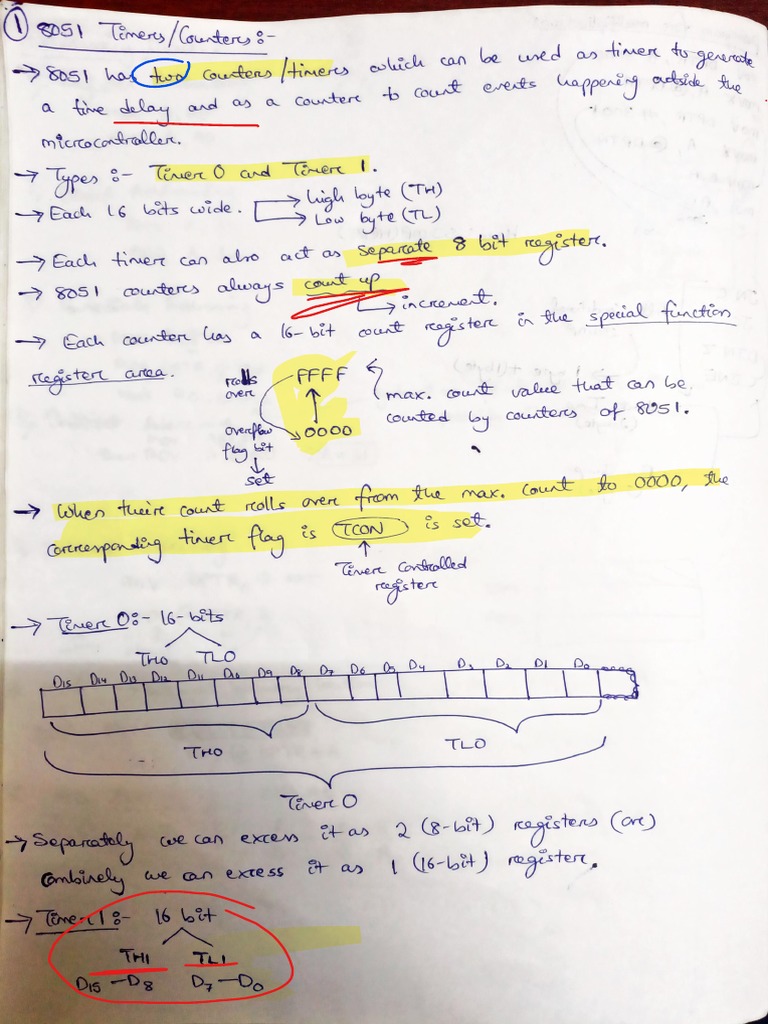 1 8051 Timers/Counters:-
→ 8051 has two counters/timers which can be used as timer to generate
a time delay and as a counter to count events happening outside the
microcontroller.
→ Types:- Timer 0 and Timer 1.
→ Each 16 bits wide. → high byte (TH)
→ Low byte (TL)
→ Each timer can also act as separate 8 bit register.
→ 8051 counters always count up
→ increment.
→ Each counter has a 16-bit count register in the special function
register area.
rolls over FFFF max. count value that can be
counted by counters of 8051.
overflow flag bit 0000
↓
set
→ When their count rolls over from the max. count to 0000, the
corresponding timer flag is TCON is set.
↑
Timer controlled
register
→ Timer 0:- 16-bits
TH0 TL0
D15 D14 D13 D12 D11 D10 D9 D8 D7 D6 D5 D4 D3 D2 D1 D0
TH0 TL0
Timer 0
→ Separately we can excess it as 2 (8-bit) registers (or)
Combinely we can excess it as 1 (16-bit) register.
→ Timer 1:- 16 bit
TH1 TL1
D15 — D8 D7 — D0